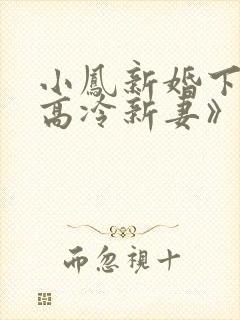 小鳳新婚下
高冷新妻》
而忽視十